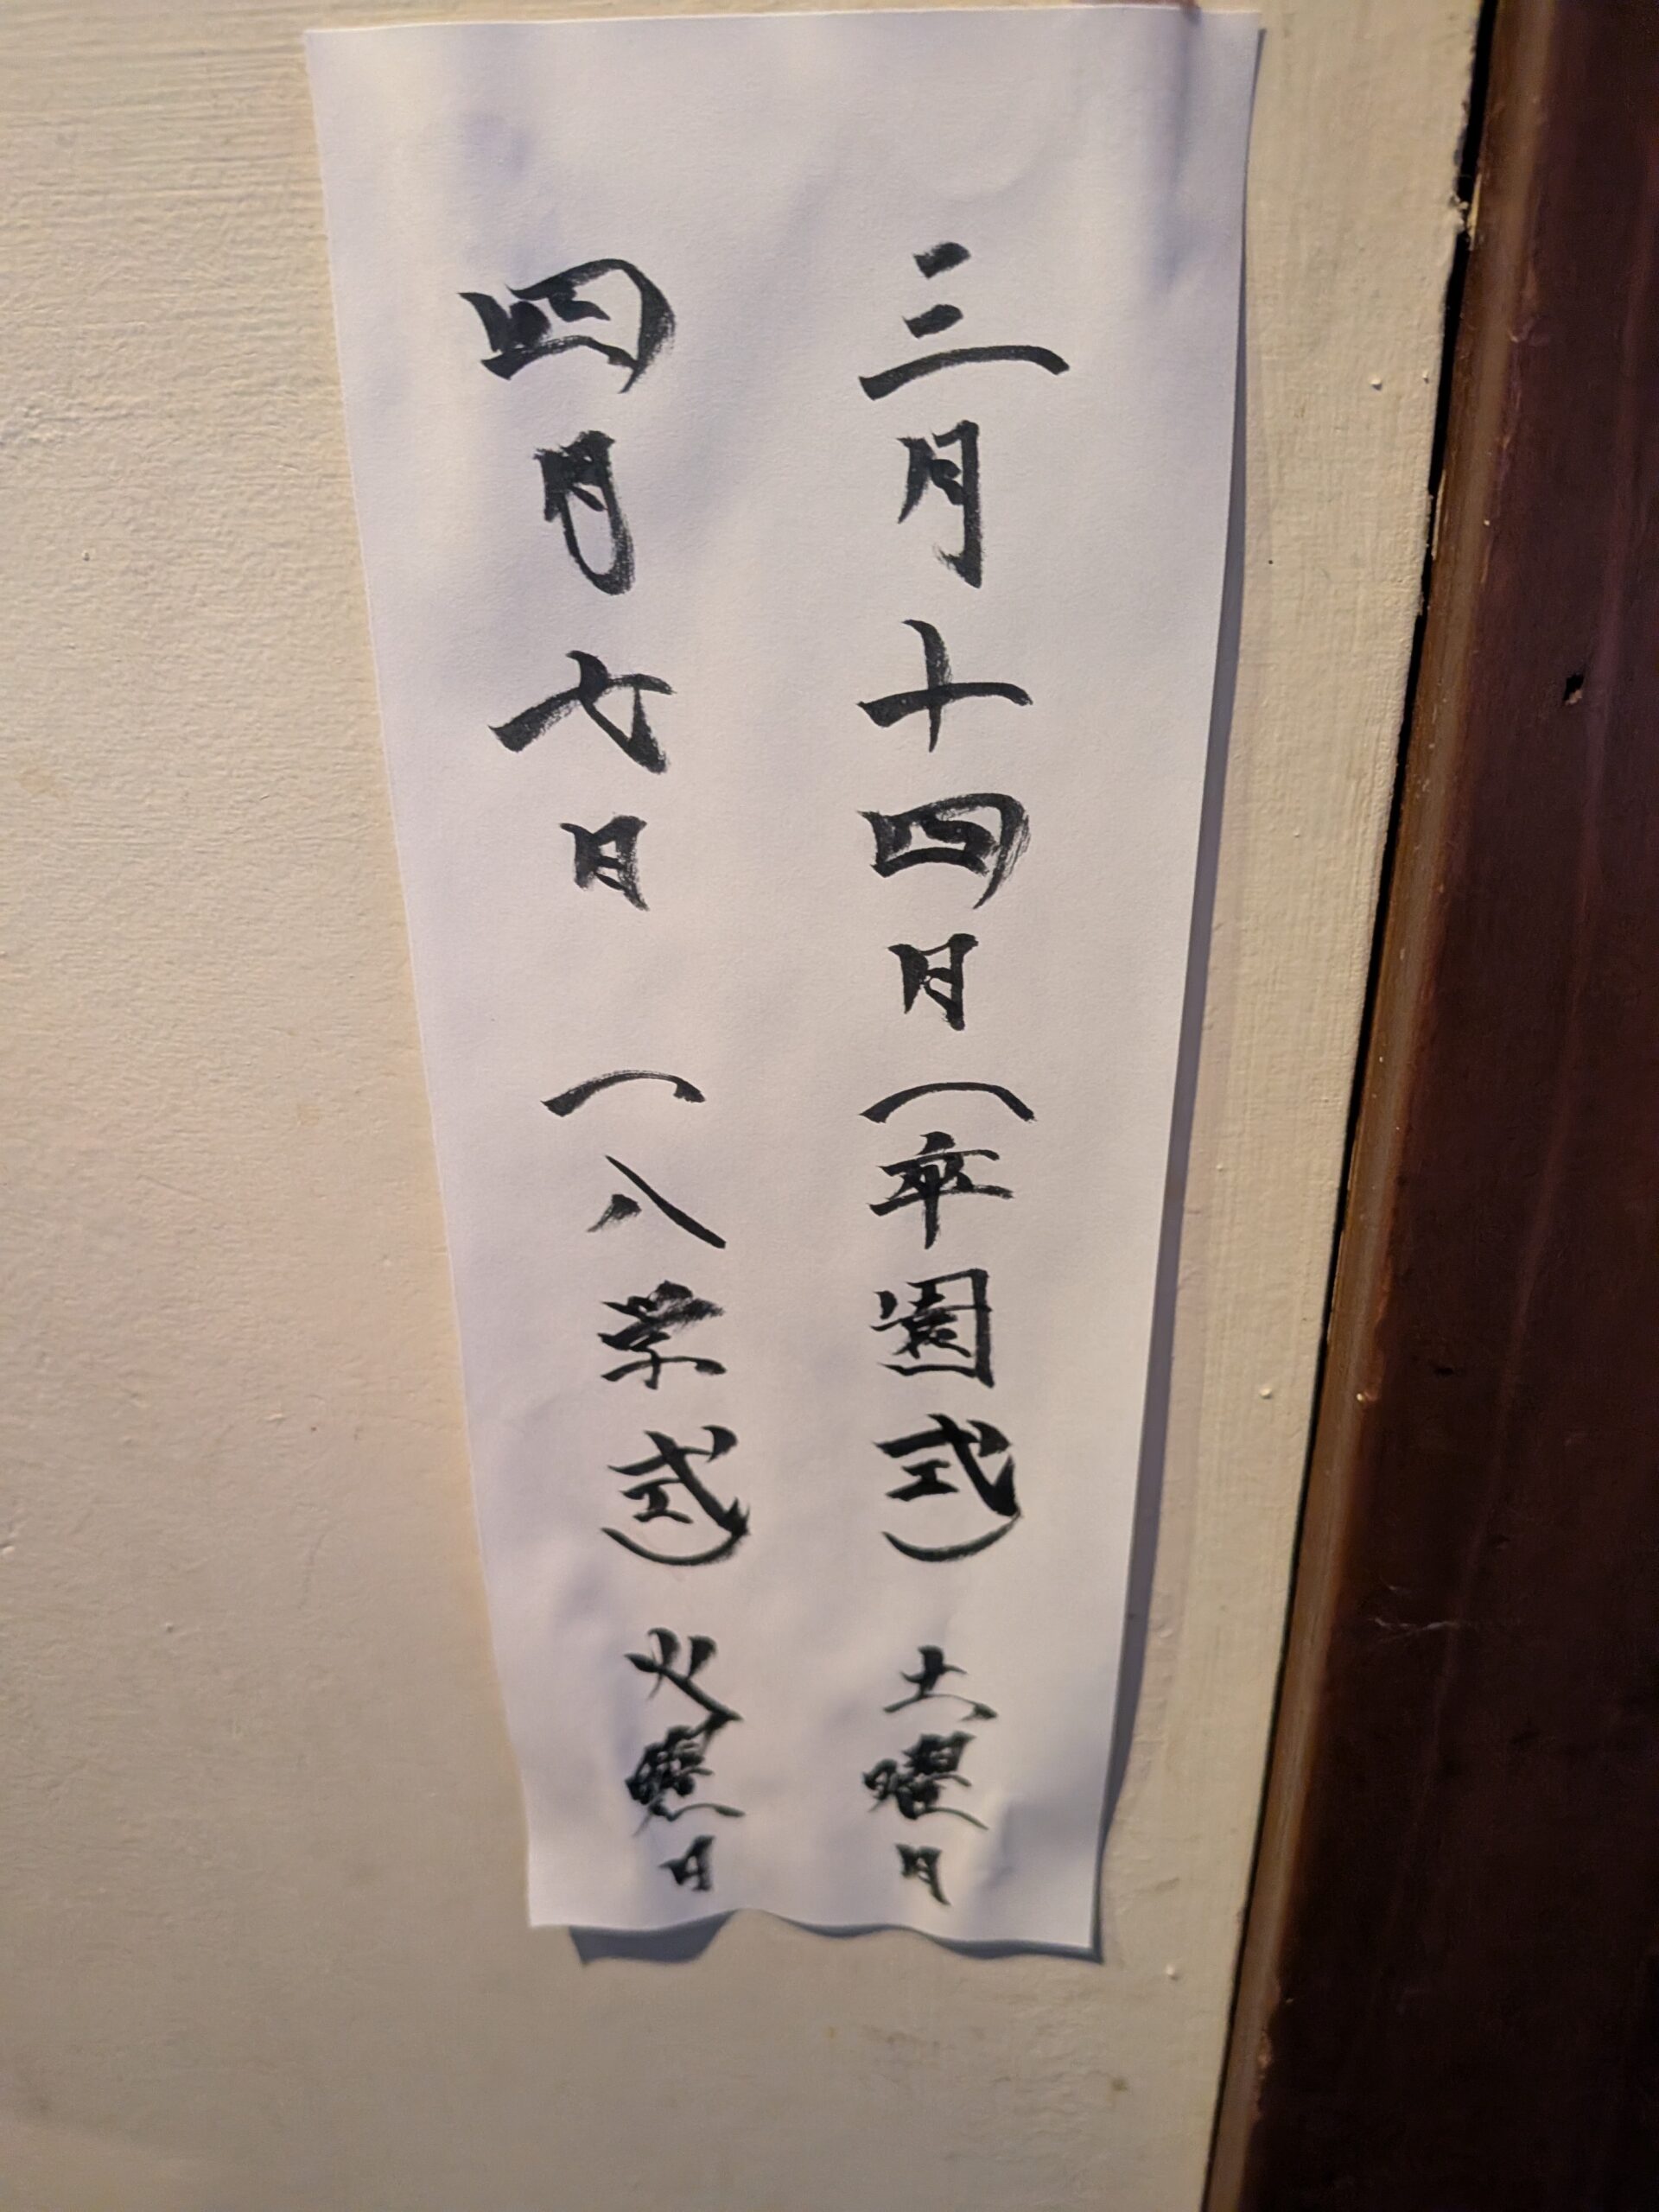 三月十四日（卒園式）土曜日
四月七日（入学式）火曜日